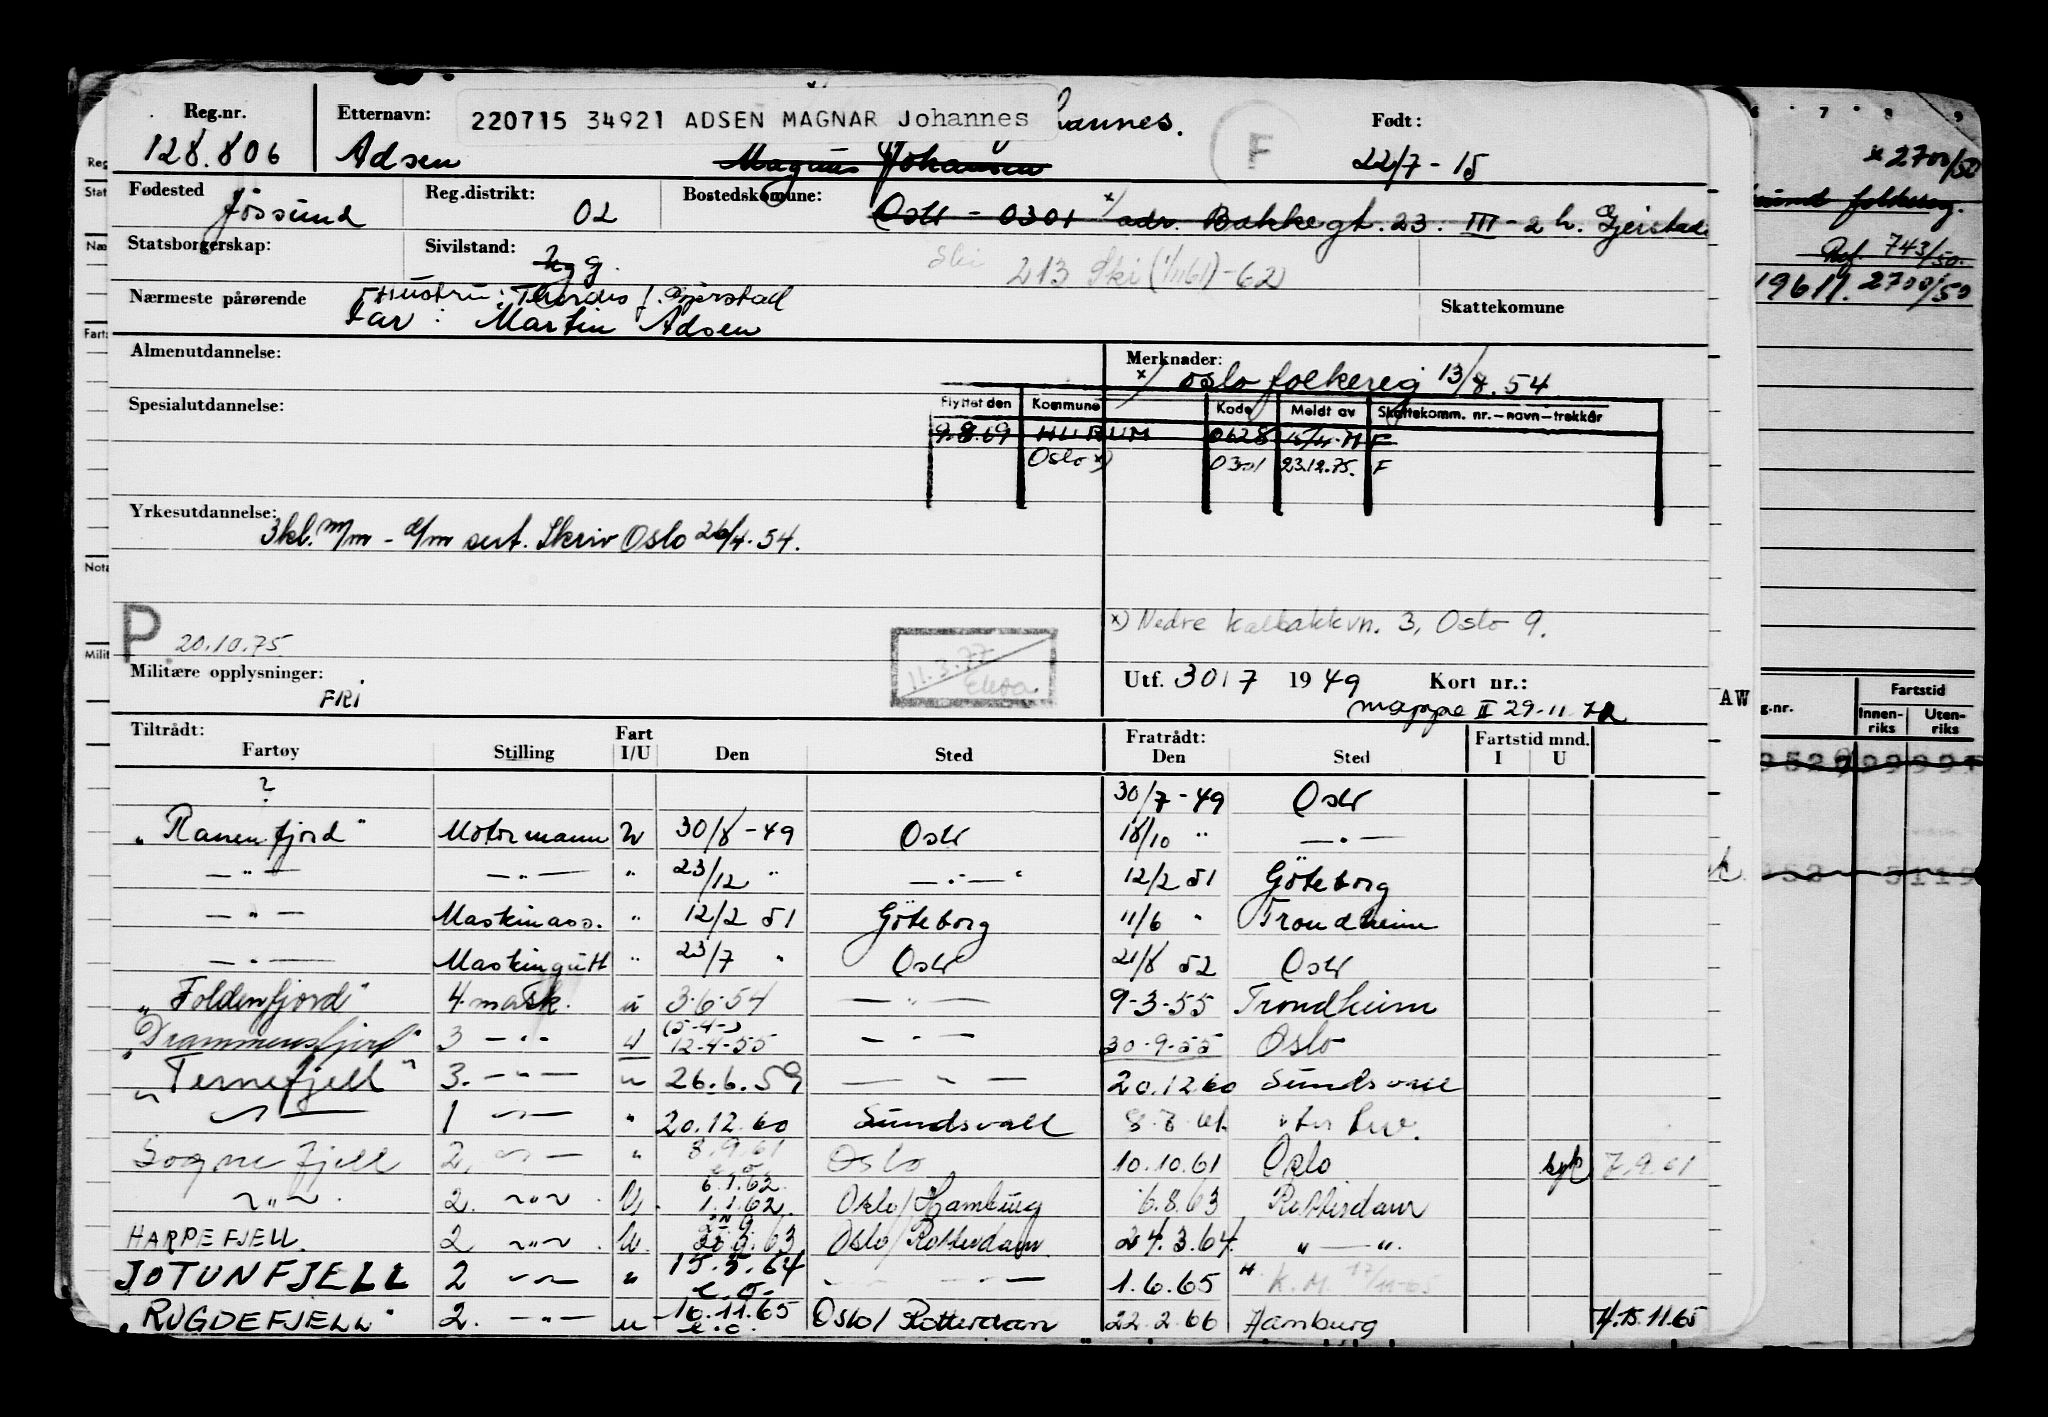 Reg.nr. Etternavn: 220715 34921 ADSEN MAGNAR Johannes hannes. F Født:
128.806 Adsen Magnus Johansen 22/7-15
Fødested Reg.distrikt: Bostedskomune:
Jössund 02 Oslo - 0301 x) adr. Bakkegt. 23. III - 2 h. Gjerstad
Statsborgerskap: Sivilstand: Ug g. 213 Ski (1/1161)-62
Ski
Nærmeste pårørende Hustru: Thordis f. Gjerstad Skattekomune
Far: Martin Adsen
Almenutdannelse: Merknader:
x) Oslo folkereg 13/8.54
Spesialutdannelse: Flyttet den Kommune Kode Meldt av Skattekomm. nr.-navn-trekkår
9.8.69 HURUM 0628 F
Oslo x) 0301 23.12.75. F
Yrkesutdannelse:
3kl. m/m - d/m sert. Skriv Oslo 26/4.54.
x) Nedre Kalbakkvn. 3, Oslo 9.
P. 20.10.75 11.3.77
Militære opplysninger: Utf. 30/7 1949 Kort nr.:
FRI mappe II 29-11-72
AW
Tiltrådt: Fart Fratrådt: Fartstid mnd.
Fartøy Stilling I/U Den Sted Den Sted I U
? 30/7-49 Oslo
"Ranenfjord" Motormann U 30/8-49 Oslo 18/10 " — " —
— " — — " — " 23/12 " — " — 12/2 51 Göteborg
— " — Maskinass. " 12/2 51 Göteborg 11/6 " Trondheim
— " — Maskingutt " 23/7 " Oslo 21/8 52 Oslo
"Foldenfjord" 4. mask. u 3-6-54 — " — 9-3-55 Trondheim
"Drammensfjord" 3 — " — U (5-4-) 12-4-55 — " — 30-9-55 Oslo
"Ternefjell" 3. — " — u 26.6.59 — " — 20.12.60 Sundsvall
— " — 1 — " — " 20.12.60 Sundsvall 8.8.61.
Sognefjell 2. — " — " 8.9.61 Oslo 10.10.61 Oslo 7.9.61
— " — 2. — " — U. 6.1.62. 1.1.62. Oslo/Hamburg 6.8.63 Rotterdam
HARPEFJELL. 2 — " — U. Oslo/Rotterdam 24.3.64. " — "
JOTUNFJELL 2 — " — " 15.5.64 e.o. — " — 1.6.65 K.M. 17/11-65.
"RUGDEFJELL" 2. — " — u 16.11.65 e.o. Oslo/Rotterdam 22.2.66 Hamburg 15.11.65
6 7 8 9
x 2700/50
folkereg.
Ref. 743/50.
1961. 2700/50
g.nr. Fartstid
Innenriks Utenriks